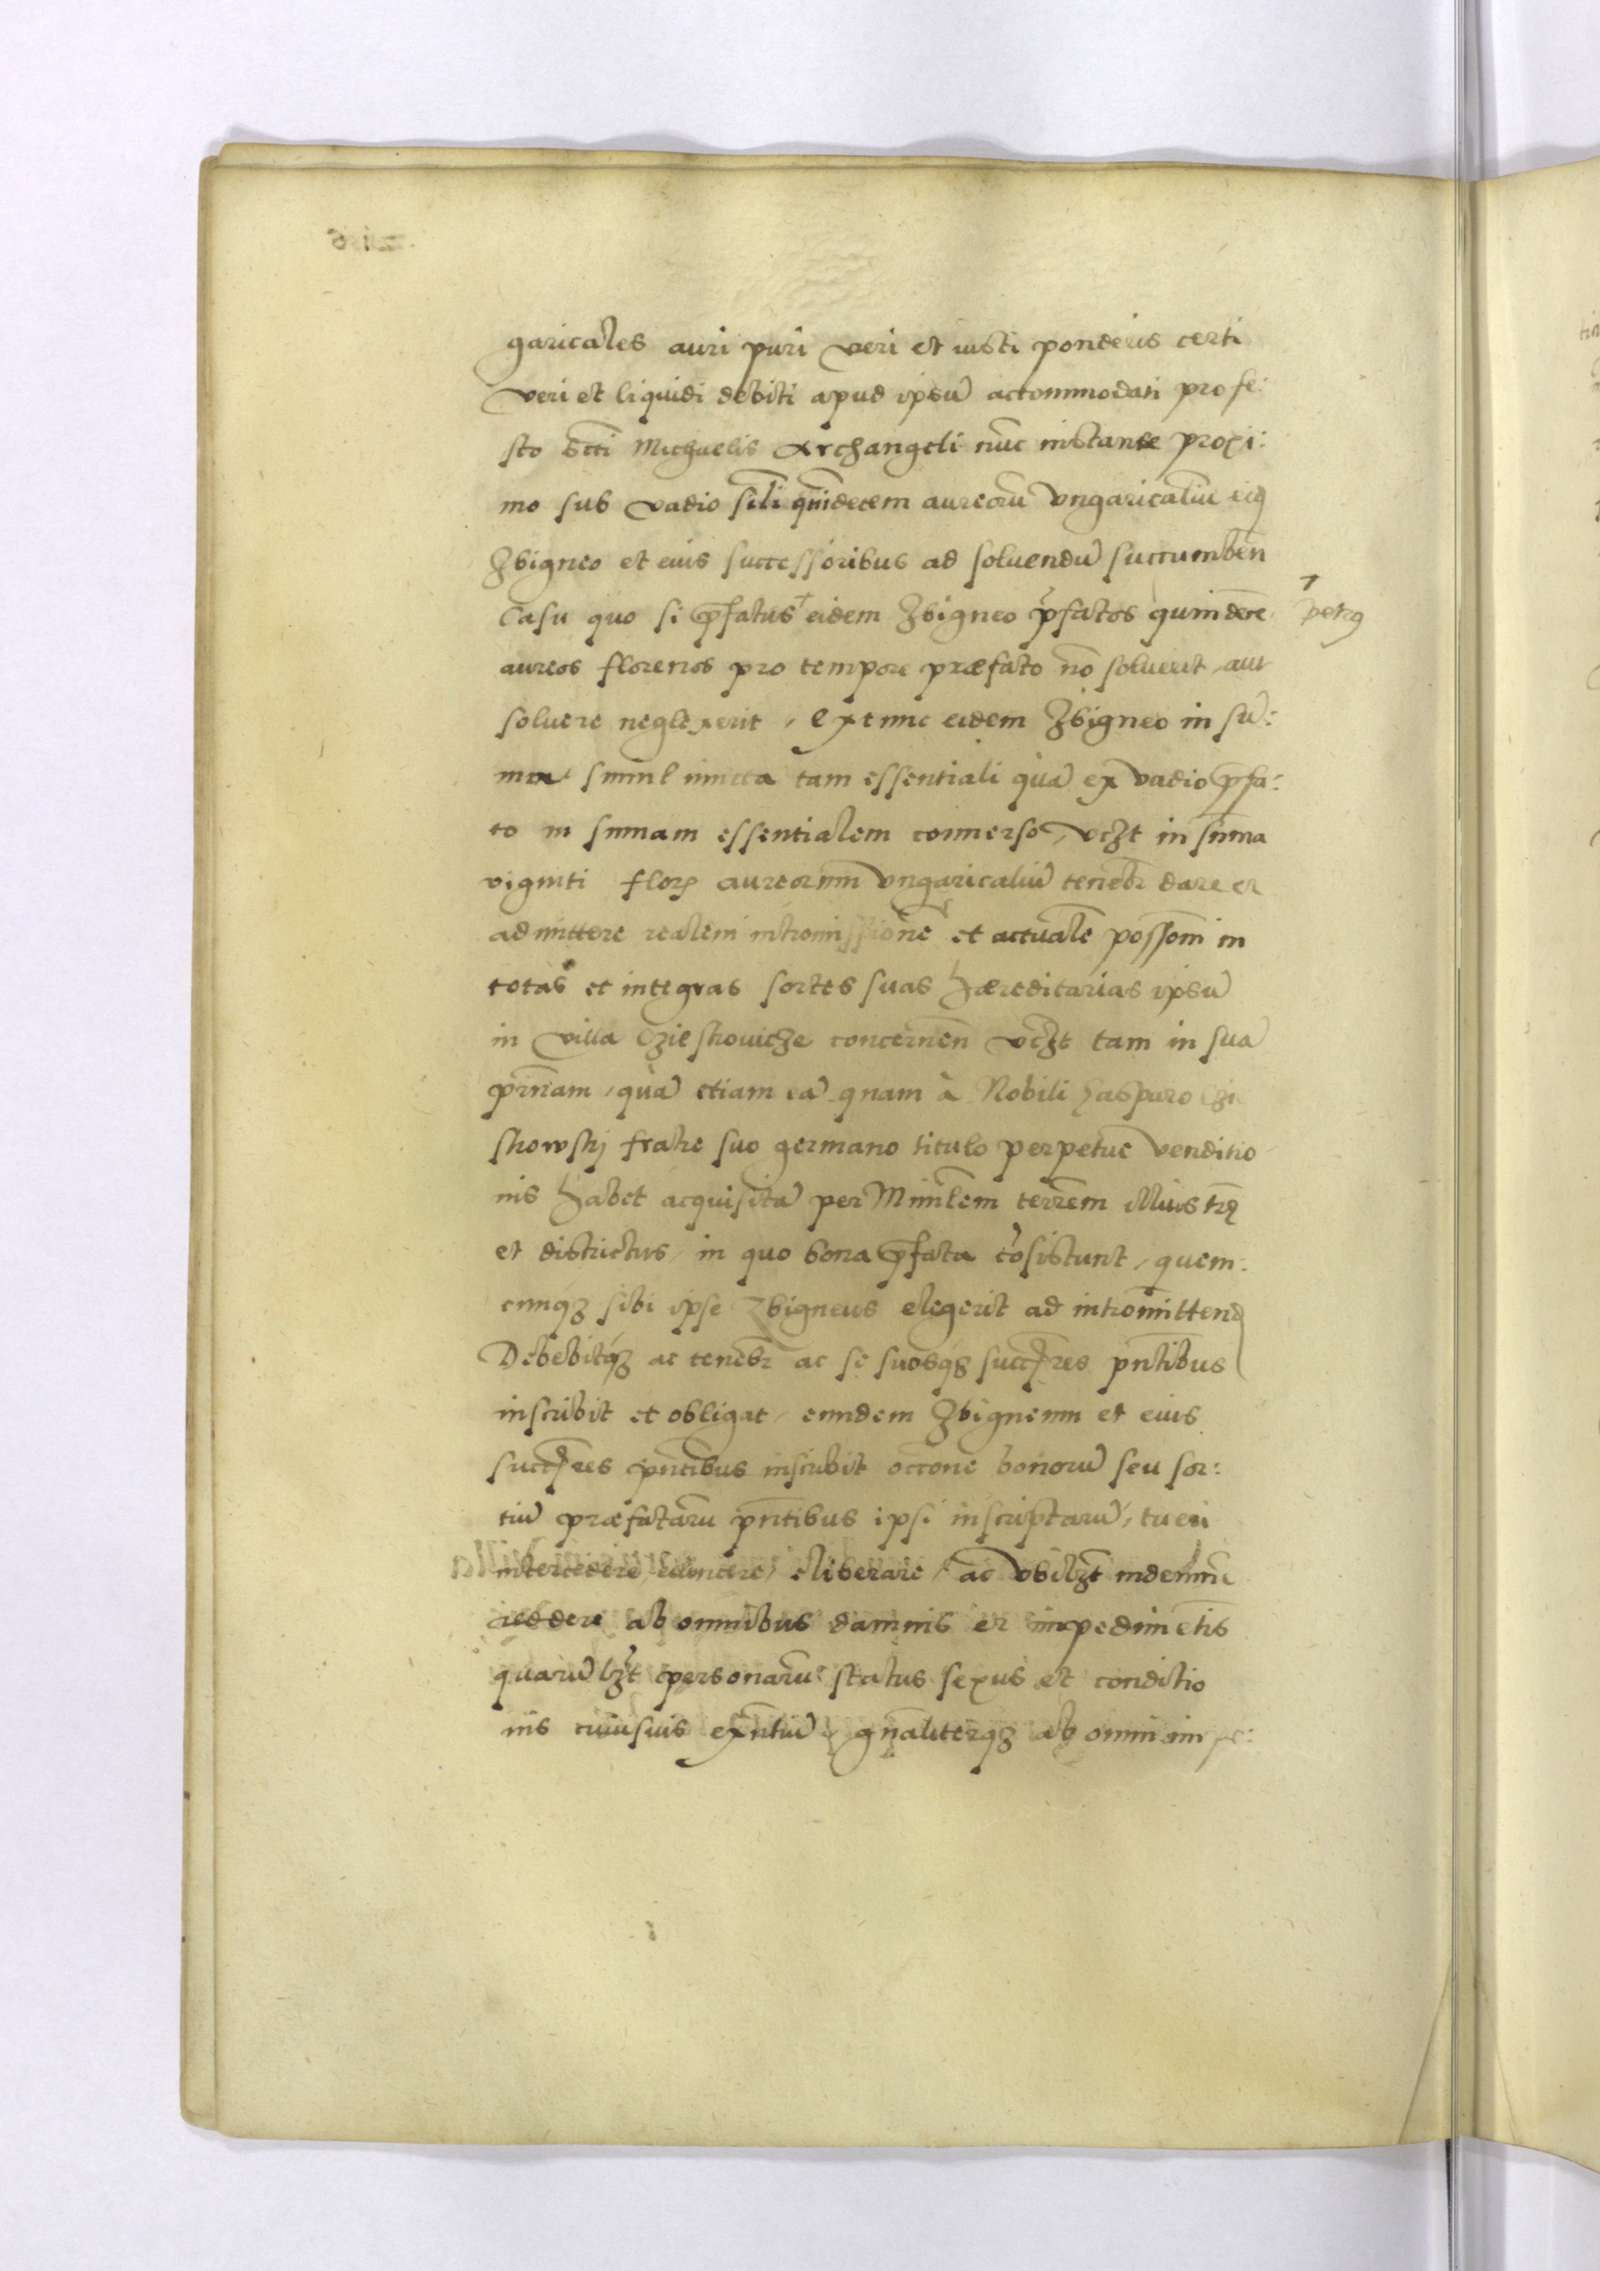 garicales auri puri veri et iusti ponderis certi
veri et liquidi debiti apud ipsū accommodati pro fe:
sto Scti Michaelis Archangeli nūc instante proxi:
mo sub vadio sīli quīdecem aureorū vngaricaliū
Zbigneo et eius successoribus ad soluendū succumbēn
Casu quo si pfatus eidem Zbigneo pfatos quindece
petrꝯ
aureos florenos pro tempore præfato nō soluerit, aut
soluere neglexerit, extunc eidem Zbigneo in sū:
ma simul iuncta tam essentiali quā ex vadio pfa:
to in sūmam essentialem conuerso, vczt in sūma
viginti flor aureorum vngaricaliū tenebr dare et
admittere realem intromissionē et actualē possom in
totas et integras sortes suas hæreditarias ipsū
in villa concernēn vczt tam in suā
prīnam, quā etiam eā quam à Nobili Casparo
fratre suo germano titulo perpetuę venditio
nis habet acquisitā per Minlem terrēm illius trę
et districtus, in quo bona pfata cōsistunt, quem:
cunqз sibi ipse Zbigneus elegerit ad intromittend
Debebitqз ac tenebr ac se suosqз succres pntibus
inscribit et obligat, eundem Zbigneum et eius
succres pntibus inscribit occone bonorū seu sor:
tiū præfatarū pntibus ipsi inscriptarū, tueri
intercedere, euincere, eliberare, ac vbilzt indemnē
reddere ab omnibus damnis et impedimētis
quarūlzt personarū status sexus et conditio
nis cuiusuis exntiū gnaliterqз ab omni impe: